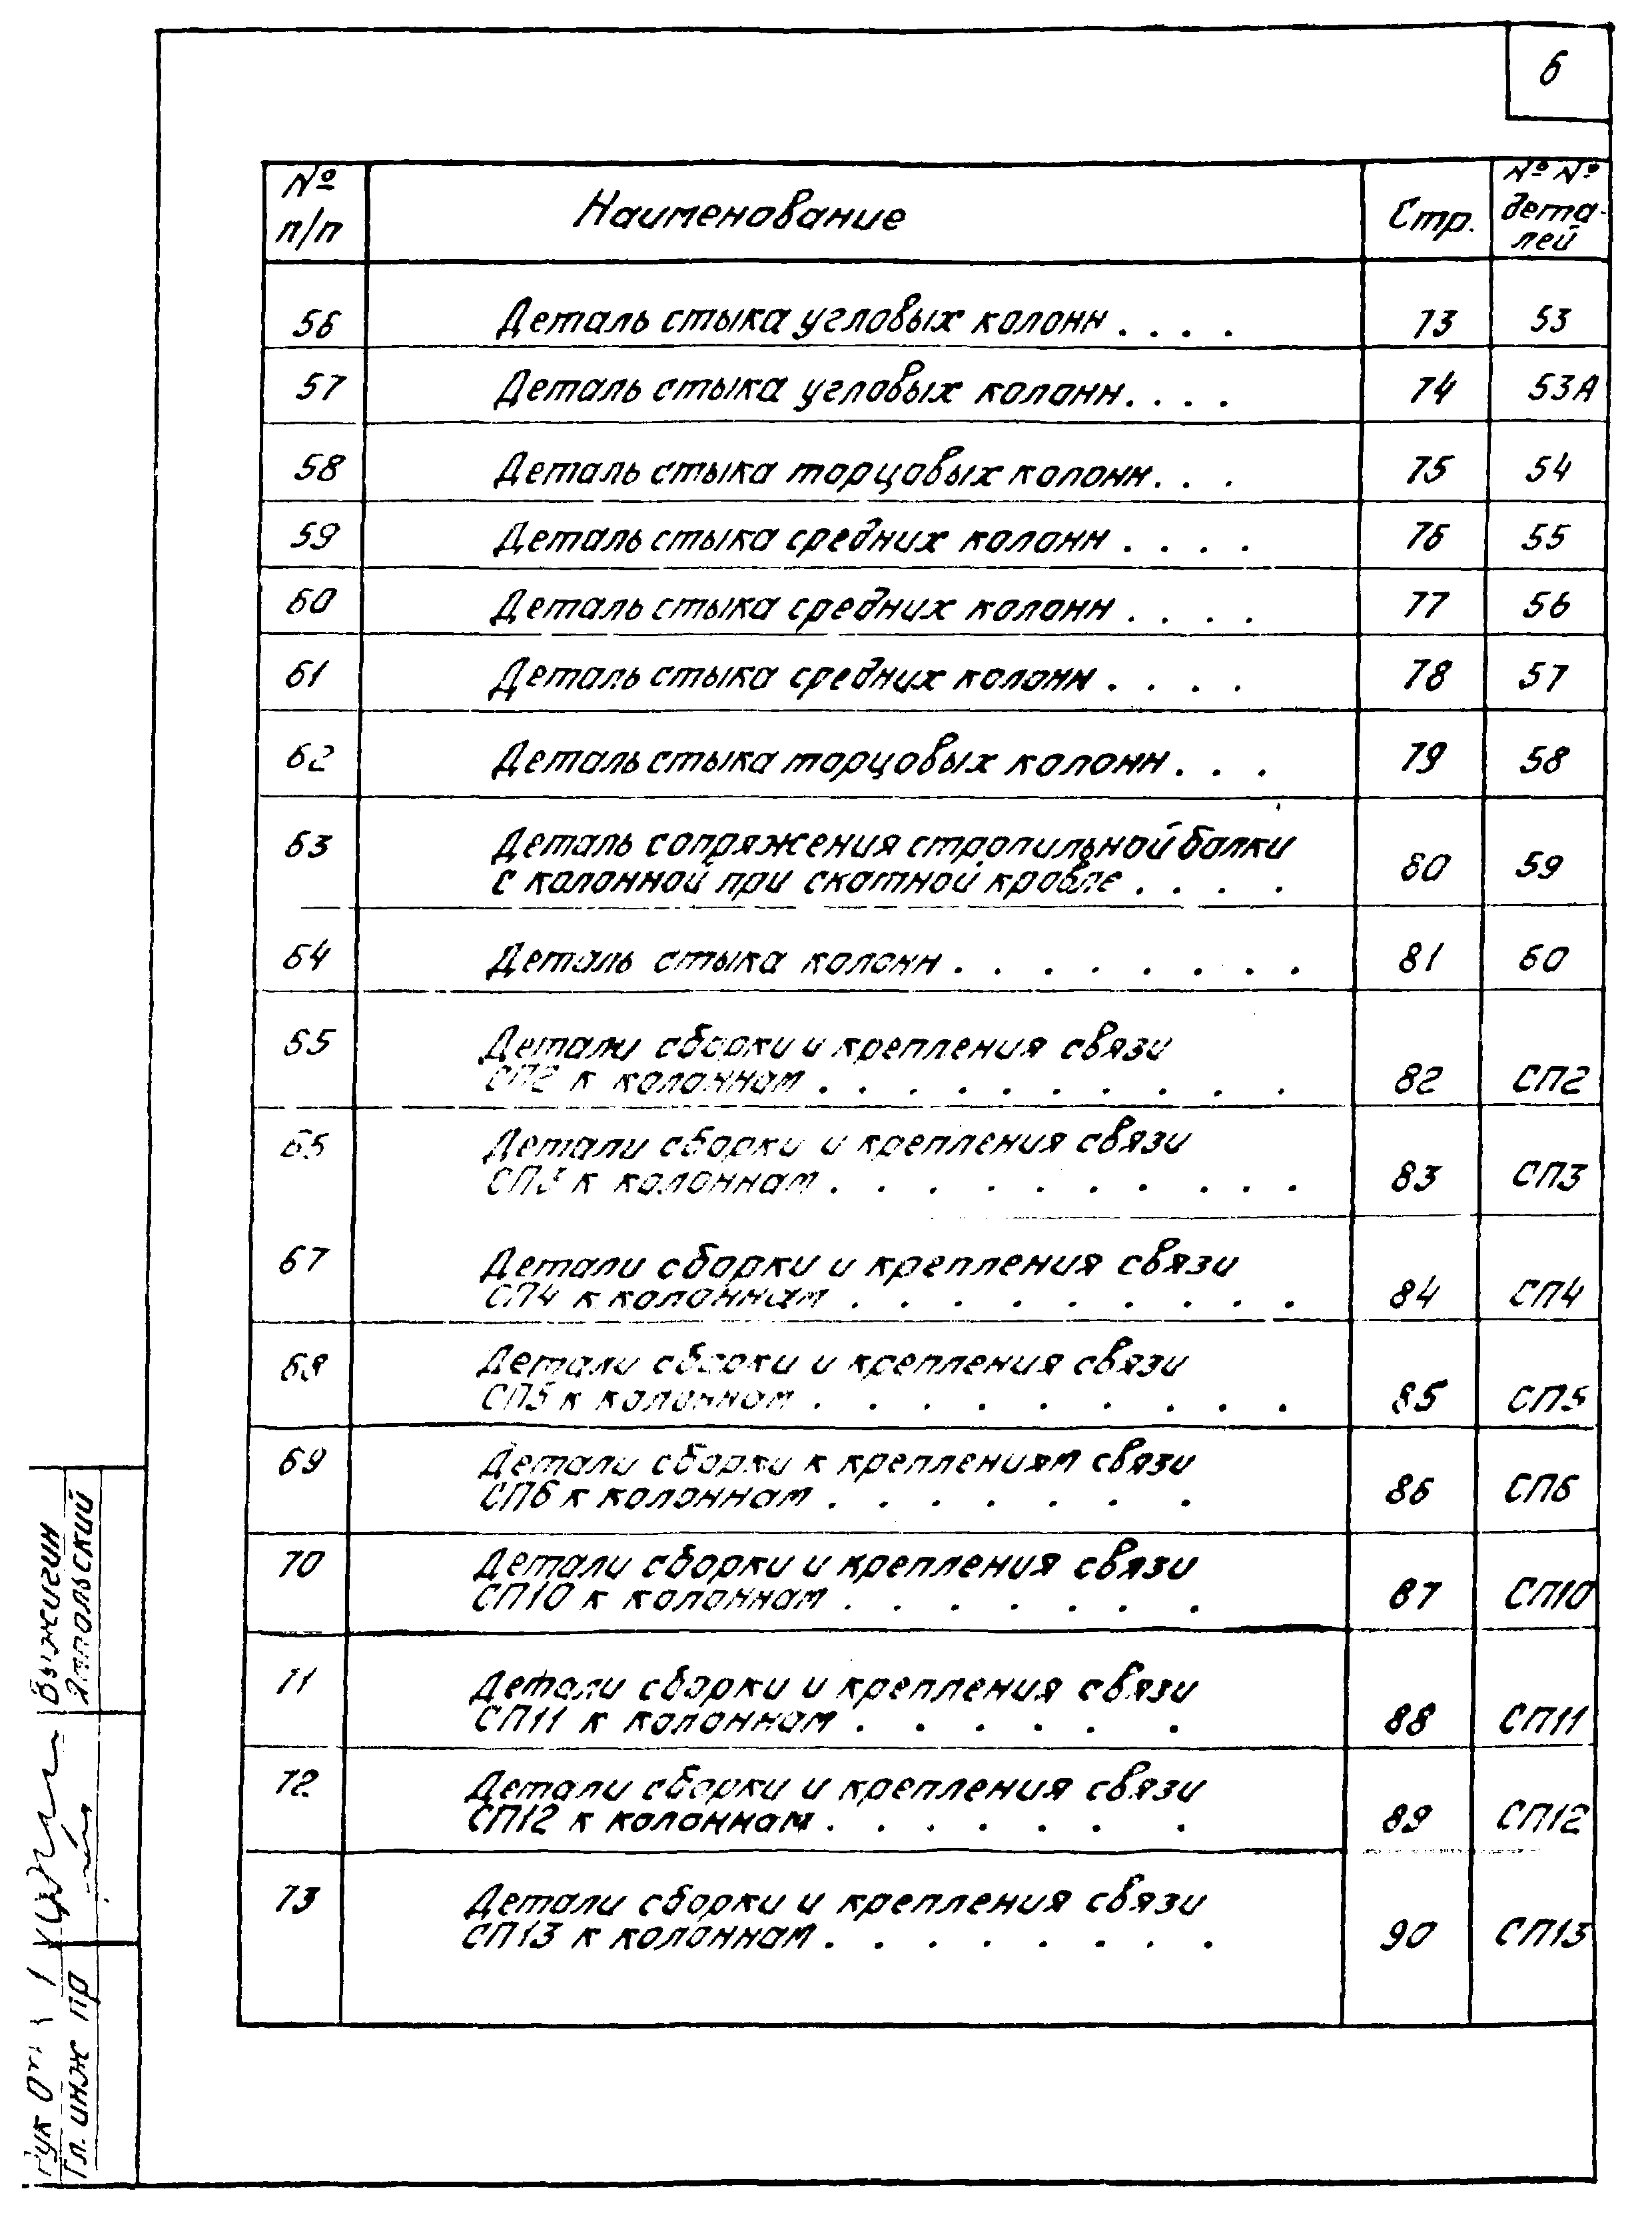 6
№ п/п Наименование Стр. №№ дета-
лей
56 Деталь стыка угловых колонн . . . . 73 53
57 Деталь стыка угловых колонн . . . . 74 53А
58 Деталь стыка торцовых колонн . . . 75 54
59 Деталь стыка средних колонн . . . . 76 55
60 Деталь стыка средних колонн . . . . 77 56
61 Деталь стыка средних колонн . . . . 78 57
62 Деталь стыка торцовых колонн . . . 79 58
63 Деталь сопряжения стропильной балки
с колонной при скатной кровле . . . . 80 59
64 Деталь стыка колонн . . . . . . . . 81 60
65 Детали сборки и крепления связи
СП2 к колоннам . . . . . . . . . . 82 СП2
66 Детали сборки и крепления связи
СП3 к колоннам . . . . . . . . . . 83 СП3
67 Детали сборки и крепления связи
СП4 к колоннам . . . . . . . . . 84 СП4
68 Детали сборки и крепления связи
СП5 к колоннам . . . . . . . . . 85 СП5
69 Детали сборки к креплениям связи
СП6 к колоннам . . . . . . . 86 СП6
70 Детали сборки и крепления связи
СП10 к колоннам . . . . . . . 87 СП10
71 Детали сборки и крепления связи
СП11 к колоннам . . . . . . 88 СП11
72 Детали сборки и крепления связи
СП12 к колоннам . . . . . . . 89 СП12
73 Детали сборки и крепления связи
СП13 к колоннам . . . . . . . . 90 СП13
Выжигин
Гл. инж пр